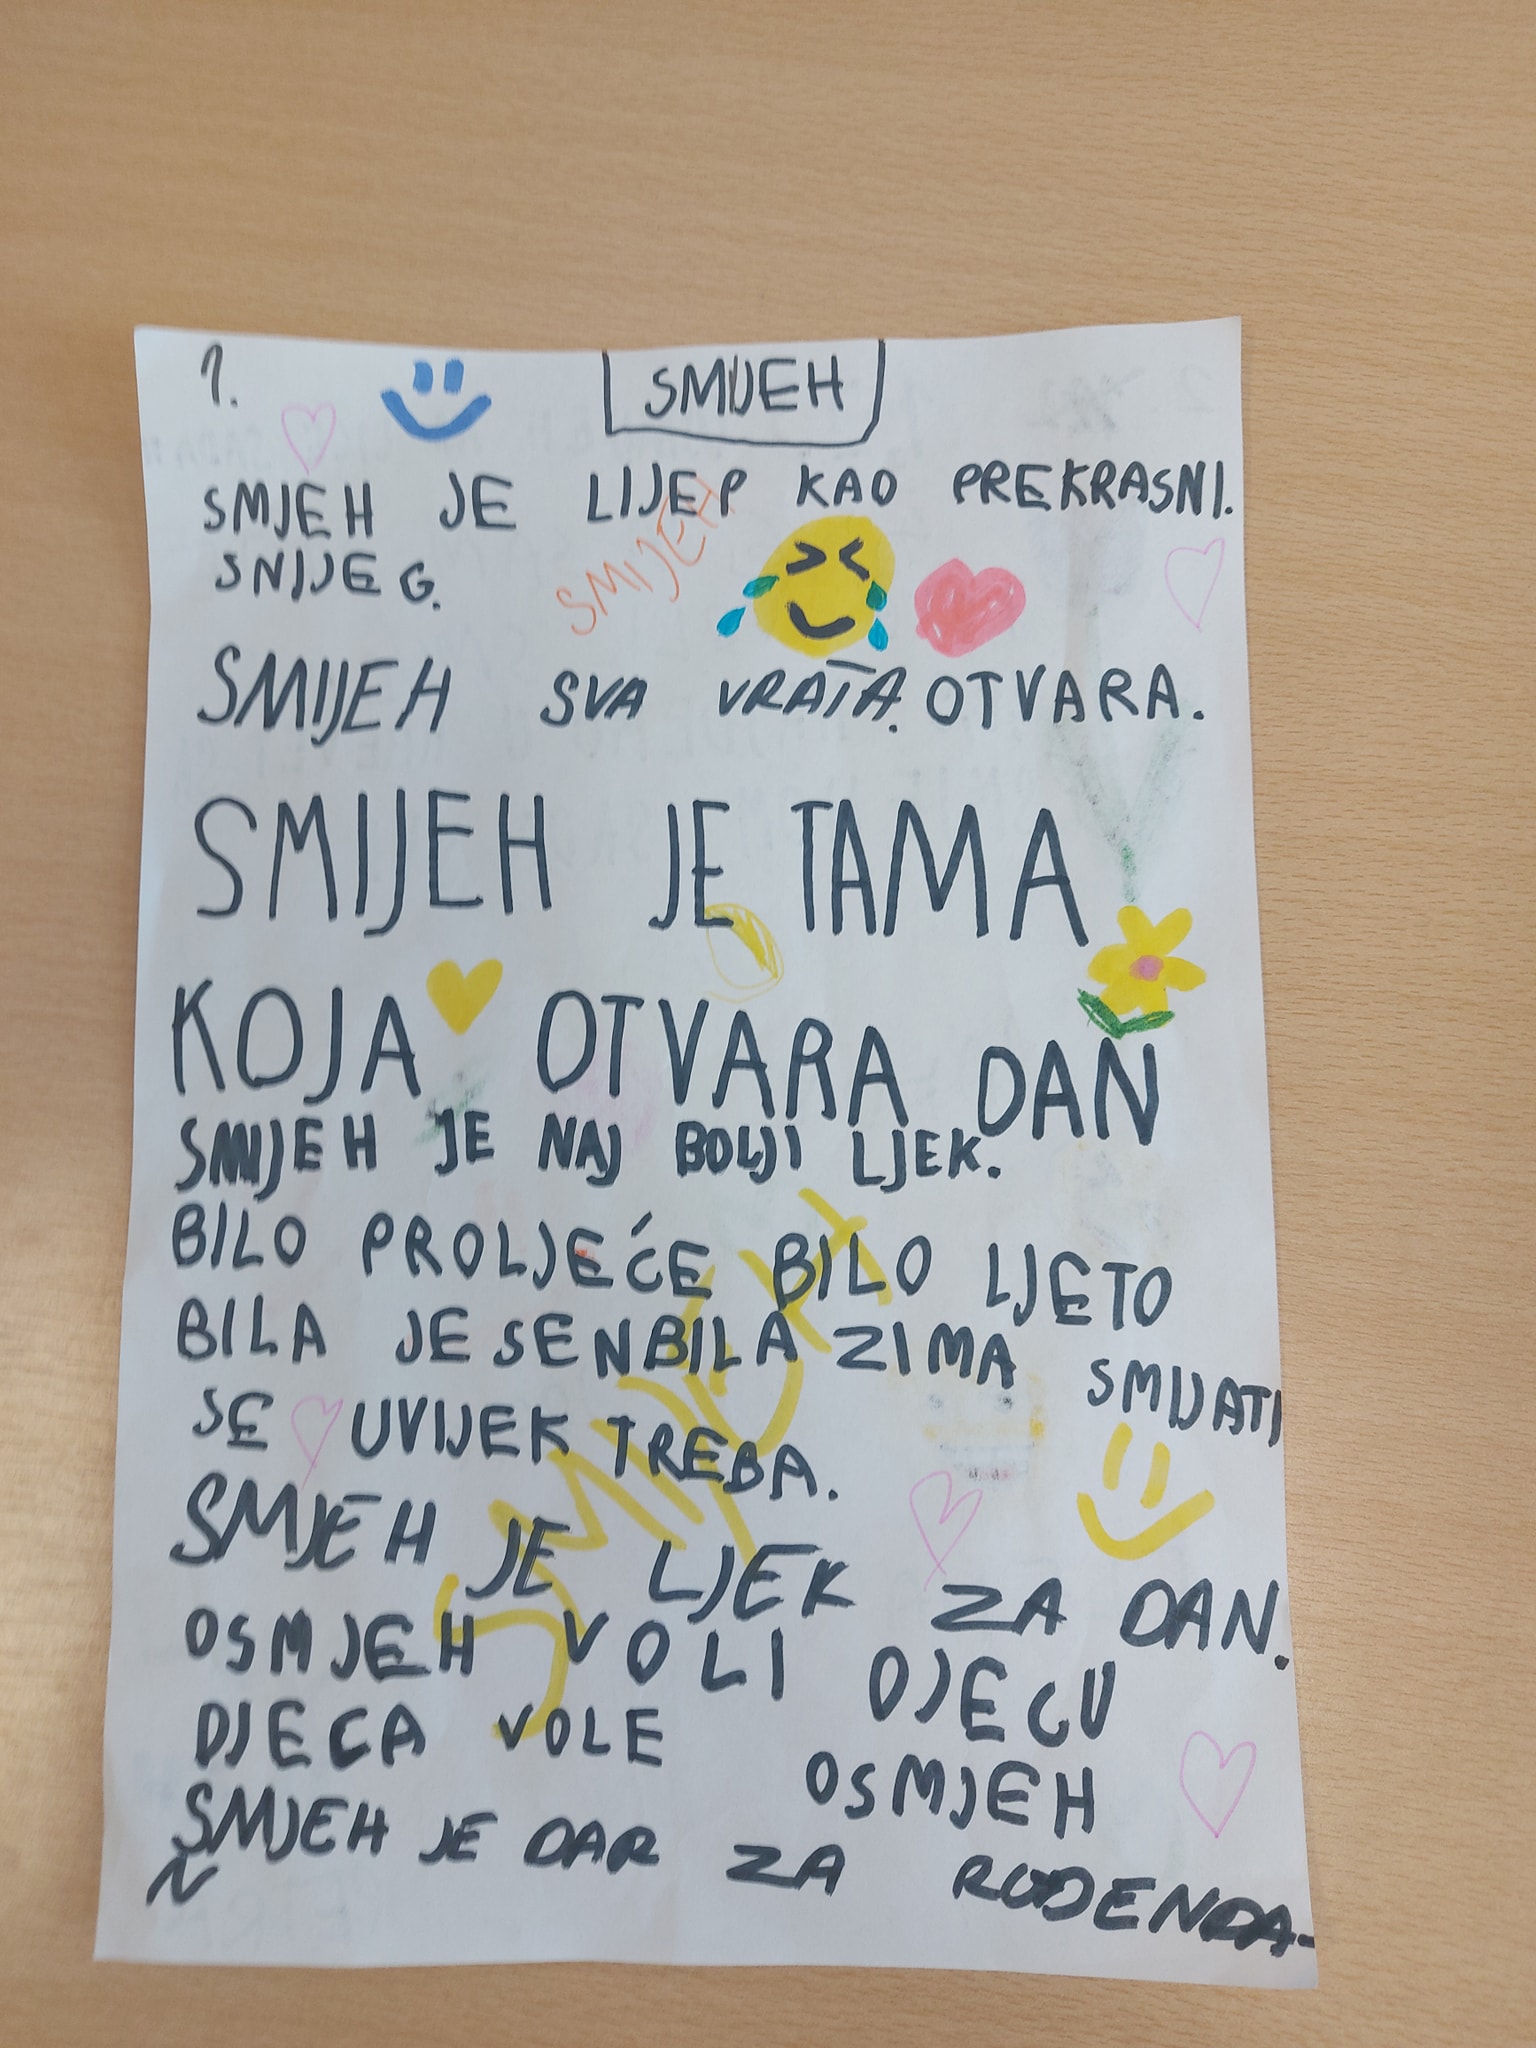 1.
SMIJEH
SMJEH JE LIJEP KAO PREKRASNI.
SNIJEG.
SMIJEH
SMIJEH SVA VRATA. OTVARA.
SMIJEH JE TAMA
KOJA OTVARA DAN
SMIJEH JE NAJ BOLJI LJEK.
BILO PROLJEĆE BILO LJETO
BILA JESEN BILA ZIMA SMIJATI
SE UVIJEK TREBA.
SMIJEH
SMJEH JE LJEK ZA DAN.
OSMJEH VOLI DJECU
DJECA VOLE OSMJEH
SMJEH JE DAR ZA ROĐENDA-
N